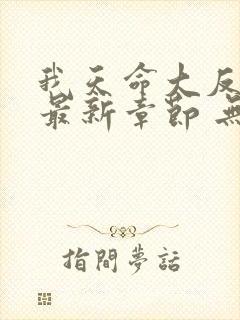 我天命大反
最新章節 無
指間夢話